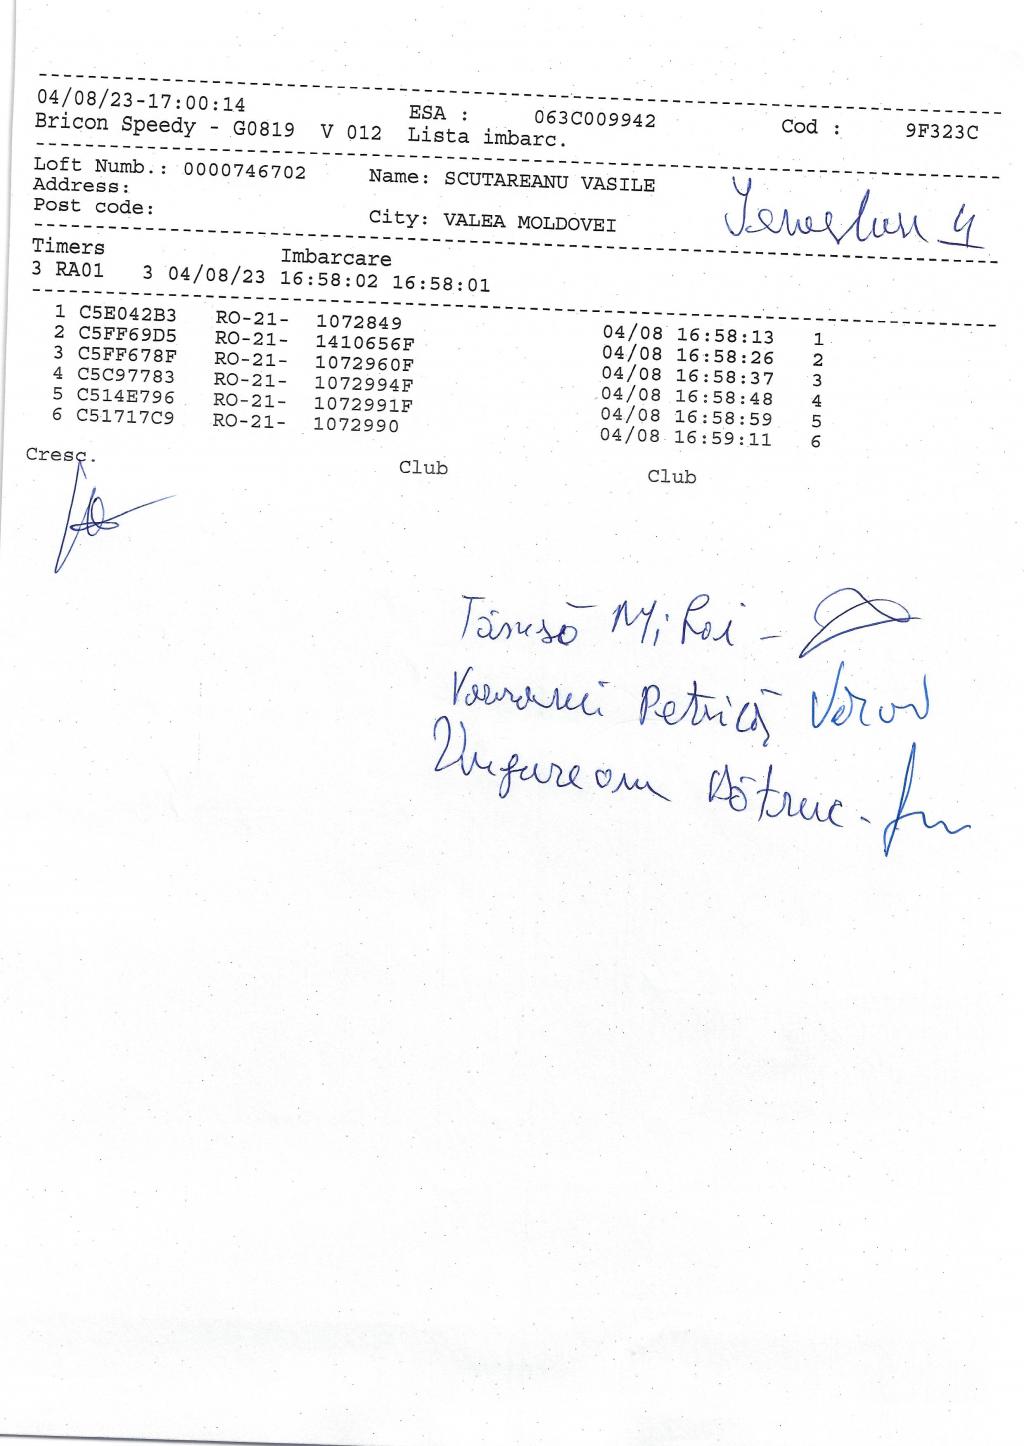 04/08/23-17:00:14 ESA : 063C009942 Cod : 9F323C
Bricon Speedy - G0819 V 012 Lista imbarc.
Loft Numb.: 0000746702 Name: SCUTAREANU VASILE
Address:
Post code: City: VALEA MOLDOVEI
Timers Imbarcare
3 RA01 3 04/08/23 16:58:02 16:58:01
1 C5E042B3 RO-21- 1072849 04/08 16:58:13 1
2 C5FF69D5 RO-21- 1410656F 04/08 16:58:26 2
3 C5FF678F RO-21- 1072960F 04/08 16:58:37 3
4 C5C97783 RO-21- 1072994F 04/08 16:58:48 4
5 C514E796 RO-21- 1072991F 04/08 16:58:59 5
6 C51717C9 RO-21- 1072990 04/08 16:59:11 6
Cresc. Club Club
Petrică